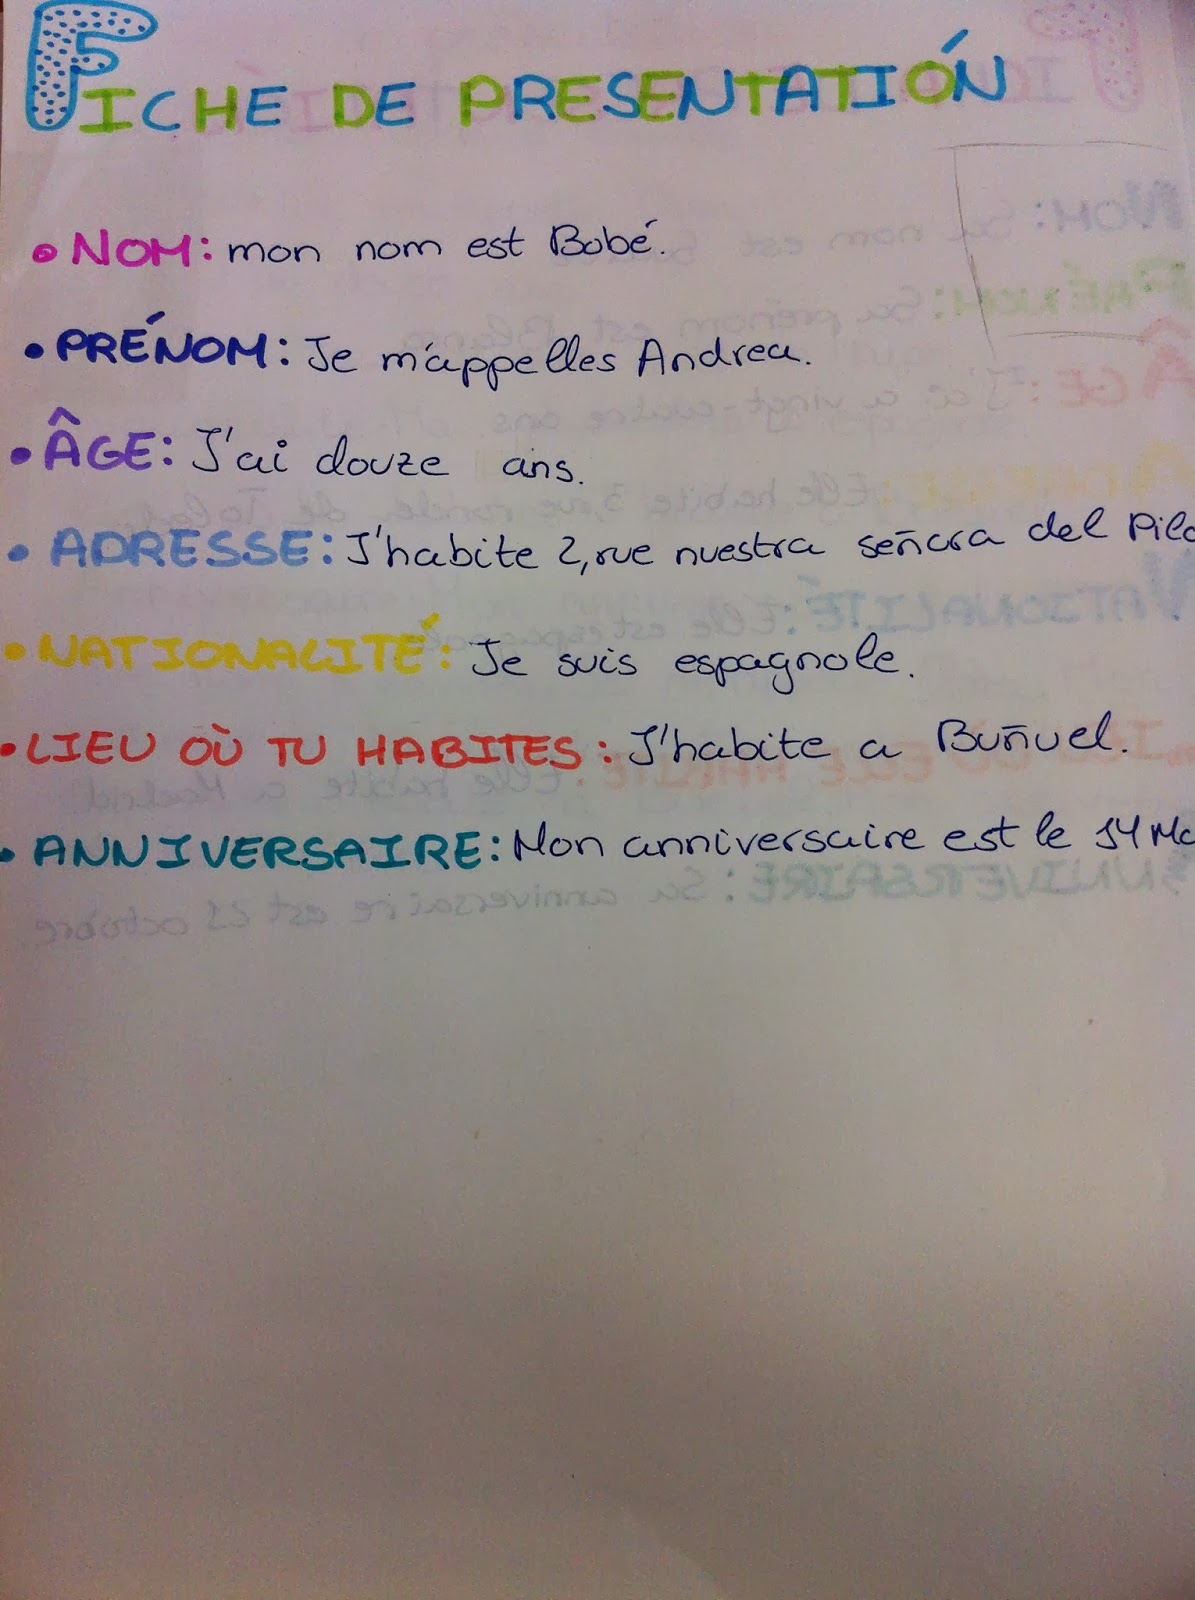 FICHE DE PRESENTATIÓN
• NOM: mon nom est Bobé.
• PRÉNOM: Je m'appelles Andrea.
• ÂGE: J'ai douze ans.
• ADRESSE: J'habite 2, rue nuestra señora del
• NATIONALITÉ: Je suis espagnole.
• LIEU OÙ TU HABITES: J'habite a Buñuel.
• ANNIVERSAIRE: Mon anniversaire est le 14